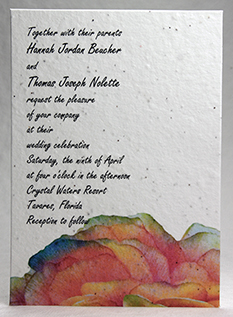 Together with their parents
Hannah Jordan Beucher
and
Thomas Joseph Nolette
request the pleasure
of your company
at their
wedding celebration
Saturday, the ninth of April
at four o'clock in the afternoon
Crystal Waters Resort
Tarares, Florida
Reception to follow